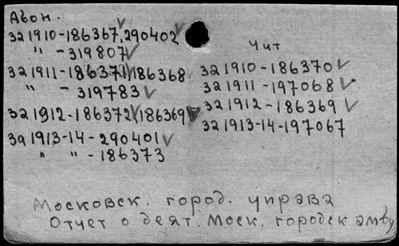 Абон.
за 1910-186367, 290402
" - 319807
за 1911-186371, 186368
" - 319783
за 1912-186372, 186369
за 1913-14-290401
" " - 186373
Чит
за 1910-186370
за 1911-197068
за 1912-186369
за 1913-14-197067
Московск. город. управа
Отчет о деят. Моск. городск